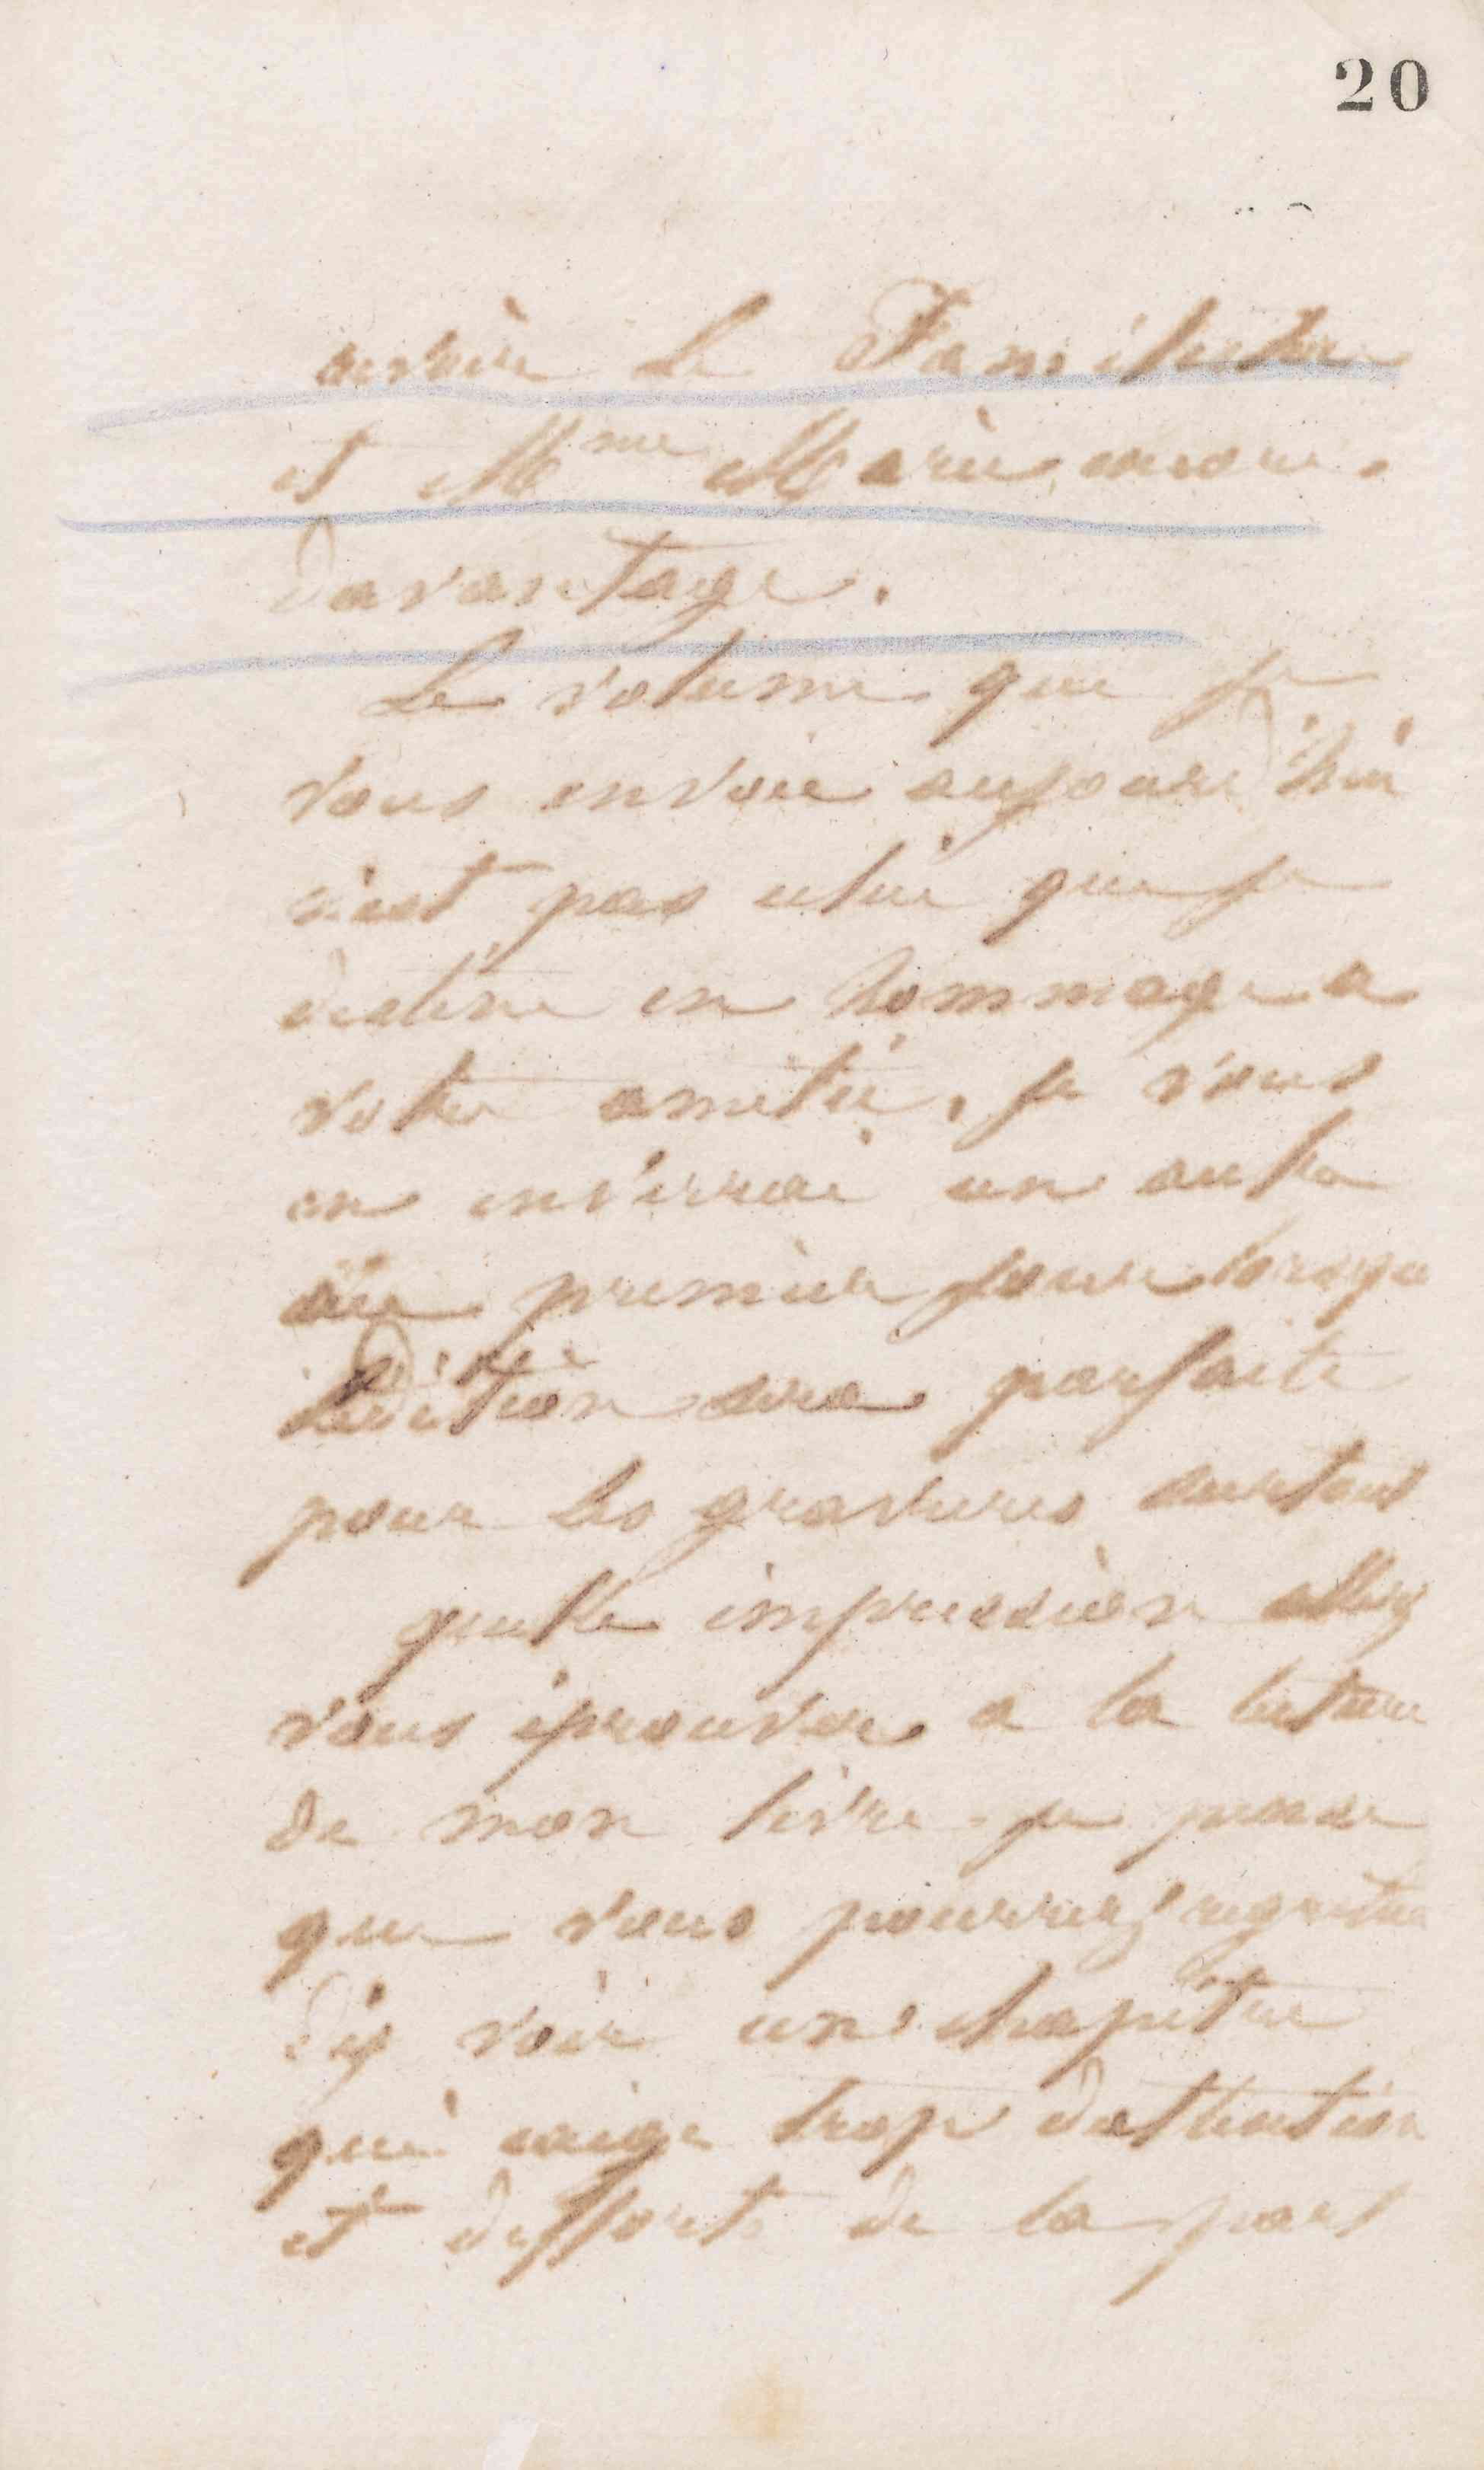 20
le Familistère
et Mme Marie encore
davantage.
Le volume que je
vous envoie aujourd'hui
n'est pas celui que je
destine en hommage a
votre amitié, je vous
en enverrai un autre
au premier jour lorsque
l'édition sera parfaite
pour les gravures surtout
quelle impression allez
vous éprouver a la lecture
de mon livre. je pense
que vous pourrez regretter
d'y voir un chapitre
qui exige trop d'attention
et d'efforts de la part